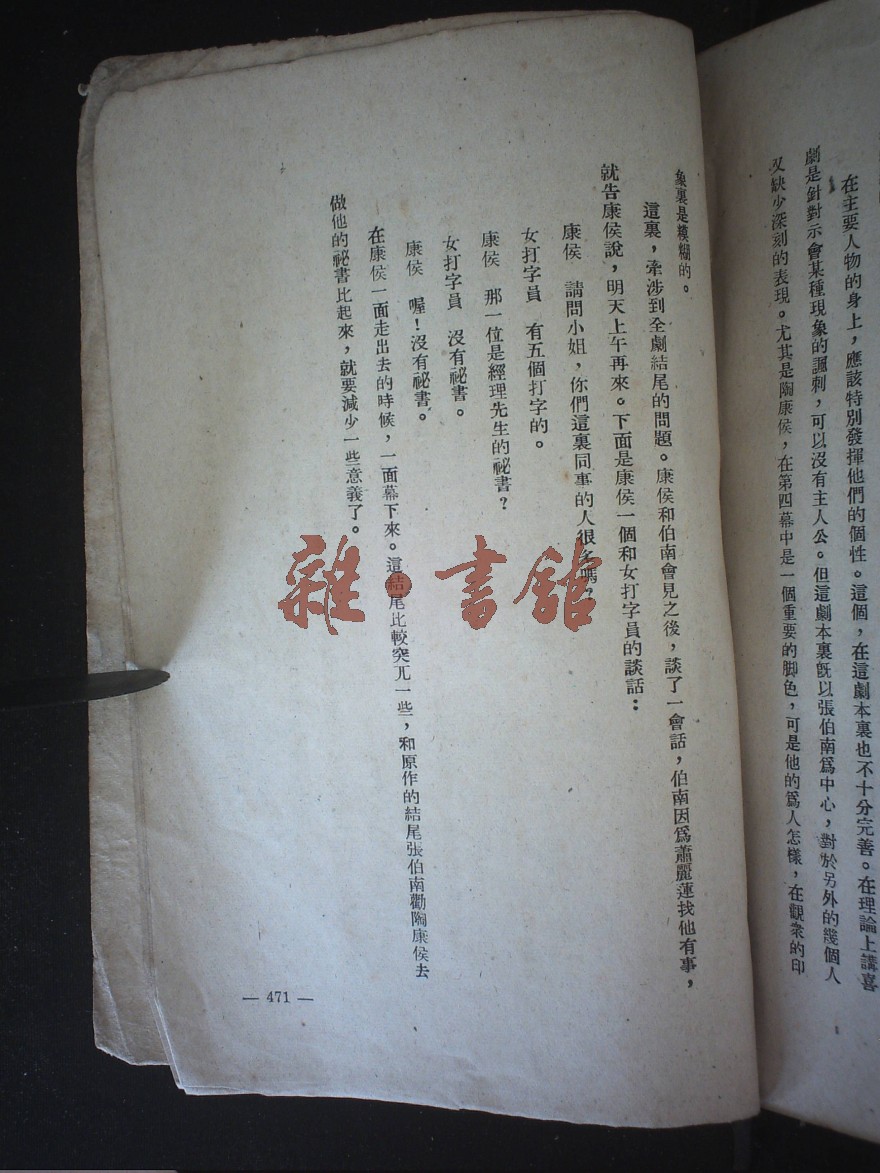 在主要人物的身上，應該特別發揮他們的個性。這個，在這劇本裏也不十分完善。在理論上講喜
劇是針對示會某種現象的諷刺，可以沒有主人公。但這劇本裏旣以張伯南爲中心，對於另外的幾個人
又缺少深刻的表現。尤其是陶康侯，在第四幕中是一個重要的脚色，可是他的爲人怎樣，在觀衆的印
象裏是模糊的。
這裏，牽涉到全劇結尾的問題。康侯和伯南會見之後，談了一會話，伯南因爲蕭麗蓮找他有事，
就告康侯說，明天上午再來。下面是康侯一個和女打字員的談話：
康侯　請問小姐，你們這裏同事的人很多嗎？
女打字員　有五個打字的。
康侯　那一位是經理先生的祕書？
女打字員　沒有祕書。
康侯　喔！沒有祕書。
在康侯一面走出去的時候，一面幕下來。這結尾比較突兀一些，和原作的結尾張伯南勸陶康侯去
做他的祕書比起來，就要減少一些意義了。
— 471 —
雜·書館